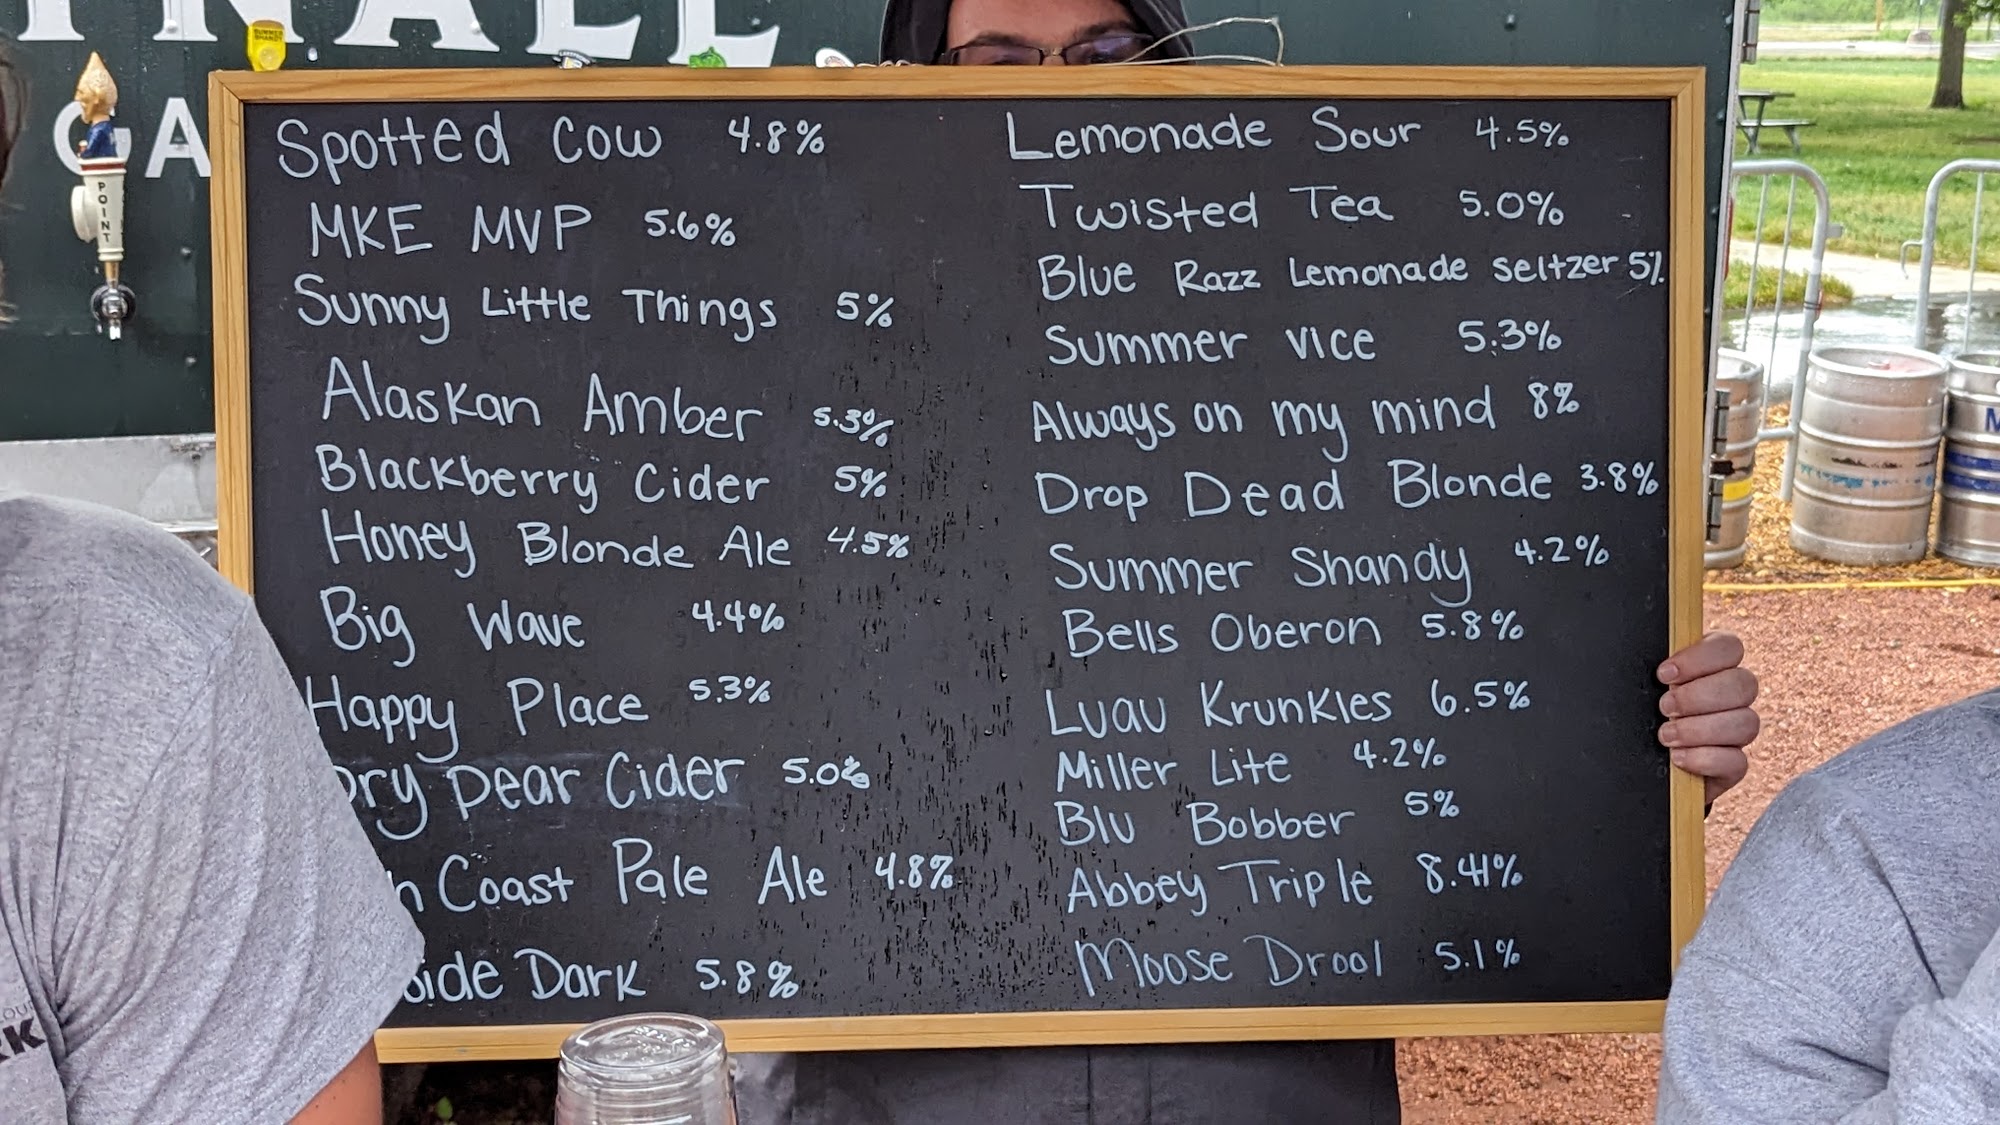 GA
POINT
Spotted Cow 4.8%
MKE MVP 5.6%
Sunny Little Things 5%
Alaskan Amber 5.3%
Blackberry Cider 5%
Honey Blonde Ale 4.5%
Big Wave 4.4%
Happy Place 5.3%
Dry Pear Cider 5.0%
Coast Pale Ale 4.8%
side Dark 5.8%
Lemonade Sour 4.5%
Twisted Tea 5.0%
Blue Razz Lemonade seltzer 5%
Summer vice 5.3%
Always on my mind 8%
Drop Dead Blonde 3.8%
Summer Shandy 4.2%
Bells Oberon 5.8%
Luau Krunkles 6.5%
Miller Lite 4.2%
Blu Bobber 5%
Abbey Triple 8.41%
Moose Drool 5.1%